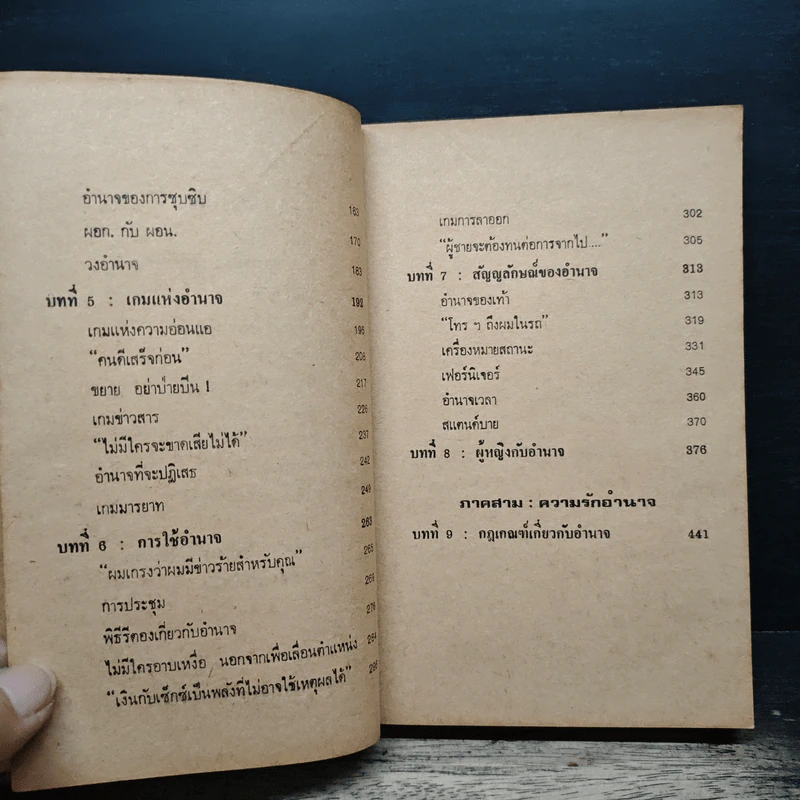 อำนาจของการซุบซิบ 163
ผอก. กับ ผอน. 170
วงอำนาจ 183
บทที่ 5 : เกมแห่งอำนาจ 192
เกมแห่งความอ่อนแอ 196
"คนดีเสร็จก่อน" 208
ขยาย อย่าป่ายปีน ! 217
เกมข่าวสาร 226
"ไม่มีใครจะขาดเสียไม่ได้" 237
อำนาจที่จะปฏิเสธ 242
เกมมารยาท 249
บทที่ 6 : การใช้อำนาจ 263
"ผมเกรงว่าผมมีข่าวร้ายสำหรับคุณ" 265
การประชุม 268
พิธีรีตองเกี่ยวกับอำนาจ 276
ไม่มีใครอาบเหงื่อ นอกจากเพื่อเลื่อนตำแหน่ง 284
"เงินกับเซ็กซ์เป็นพลังที่ไม่อาจใช้เหตุผลได้" 295
เกมการลาออก 302
"ผู้ชายจะต้องทนต่อการจากไป...." 305
บทที่ 7 : สัญญลักษณ์ของอำนาจ 313
อำนาจของเท้า 313
"โทร ฯ ถึงผมในรถ" 319
เครื่องหมายสถานะ 331
เฟอร์นิเจอร์ 345
อำนาจเวลา 360
สแตนด์บาย 370
บทที่ 8 : ผู้หญิงกับอำนาจ 376
ภาคสาม : ความรักอำนาจ
บทที่ 9 : กฎเกณฑ์เกี่ยวกับอำนาจ 441